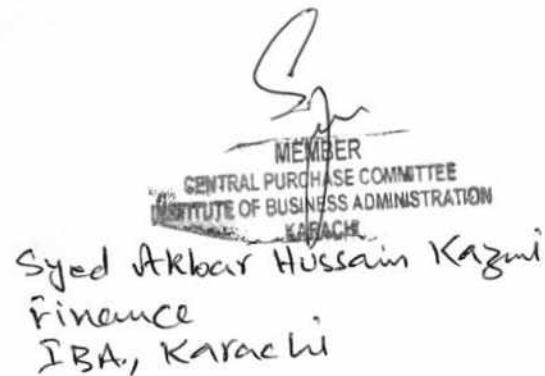 MEMBER
CENTRAL PURCHASE COMMITTEE
INSTITUTE OF BUSINESS ADMINISTRATION
KARACHI
Syed Akbar Hussain Kazmi
Finance
IBA., Karachi